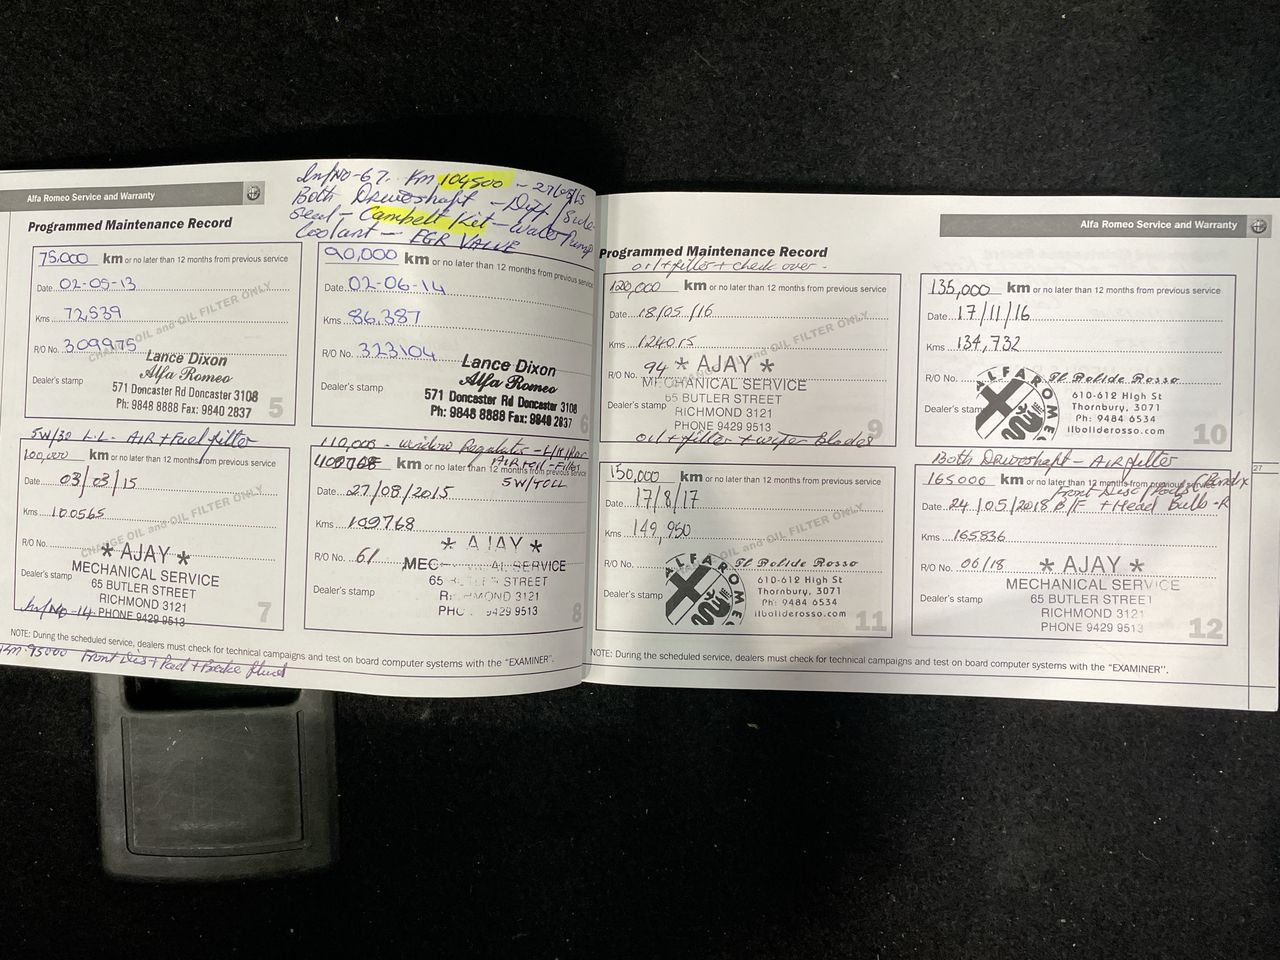 Alfa Romeo Service and Warranty
Inv/No-67. Km 104500 - 27/05/15
Both Driveshaft - Diff/Side
Seal - Cambelt Kit - Water Pump
Coolant - EGR VALVE
Programmed Maintenance Record
75,000 km or no later than 12 months from previous service
Date 02-05-13
Kms 72,539
R/O No. 309975
CHANGE OIL and OIL FILTER ONLY
Dealer's stamp
Lance Dixon
Alfa Romeo
571 Doncaster Rd Doncaster 3108
Ph: 9848 8888 Fax: 9840 2837
5
90,000 km or no later than 12 months from previous service
Date 02-06-14
Kms 86,387
R/O No. 323104
Dealer's stamp
Lance Dixon
Alfa Romeo
571 Doncaster Rd Doncaster 3108
Ph: 9848 8888 Fax: 9840 2837
6
5W/30 L.L - AIR + Fuel filter
100,000 km or no later than 12 months from previous service
Date 03/03/15
Kms 100565
R/O No.
CHANGE OIL and OIL FILTER ONLY
Dealer's stamp
* AJAY *
MECHANICAL SERVICE
65 BUTLER STREET
RICHMOND 3121
PHONE 9429 9513
Inv/No-14
7
110,000 - window Regulator -
km or no later than 12 months from previous service
5W/
Date 27/08/2015
Kms 109768
R/O No. 61
Dealer's stamp
* AJAY *
MEC AL SERVICE
65 STREET
R MOND 3121
PHO 9429 9513
8
NOTE: During the scheduled service, dealers must check for technical campaigns and test on board computer systems with the "EXAMINER".
Km-95000 Front Disc + Pad + Brake fluid
Alfa Romeo Service and Warranty
Programmed Maintenance Record
oil + filter + check over -
120,000 km or no later than 12 months from previous service
Date 18/05/16
Kms 124015
R/O No. 94
OIL and OIL FILTER ONLY
Dealer's stamp
* AJAY *
MECHANICAL SERVICE
65 BUTLER STREET
RICHMOND 3121
PHONE 9429 9513
9
135,000 km or no later than 12 months from previous service
Date 17/11/16
Kms 134,732
R/O No.
Dealer's stamp
ALFA ROMEO
Il Bolide Rosso
610-612 High St
Thornbury, 3071
Ph: 9484 6534
ilboliderosso.com
10
oil + filter + wiper Blades
150,000 km or no later than 12 months from previous service
Date 17/8/17
Kms 149,950
R/O No.
OIL and OIL FILTER ONLY
Dealer's stamp
ALFA ROMEO
Il Bolide Rosso
610-612 High St
Thornbury, 3071
Ph: 9484 6534
ilboliderosso.com
11
Both Driveshaft - AIR filter
165000 km or no later than 12 months from previous service
Front Disc/Pads Bendix
Date 24/05/2018 B/F + Head Bulb - R
Kms 165836
R/O No. 06/18
Dealer's stamp
* AJAY *
MECHANICAL SERVICE
65 BUTLER STREET
RICHMOND 3121
PHONE 9429 9513
12
27
NOTE: During the scheduled service, dealers must check for technical campaigns and test on board computer systems with the "EXAMINER".